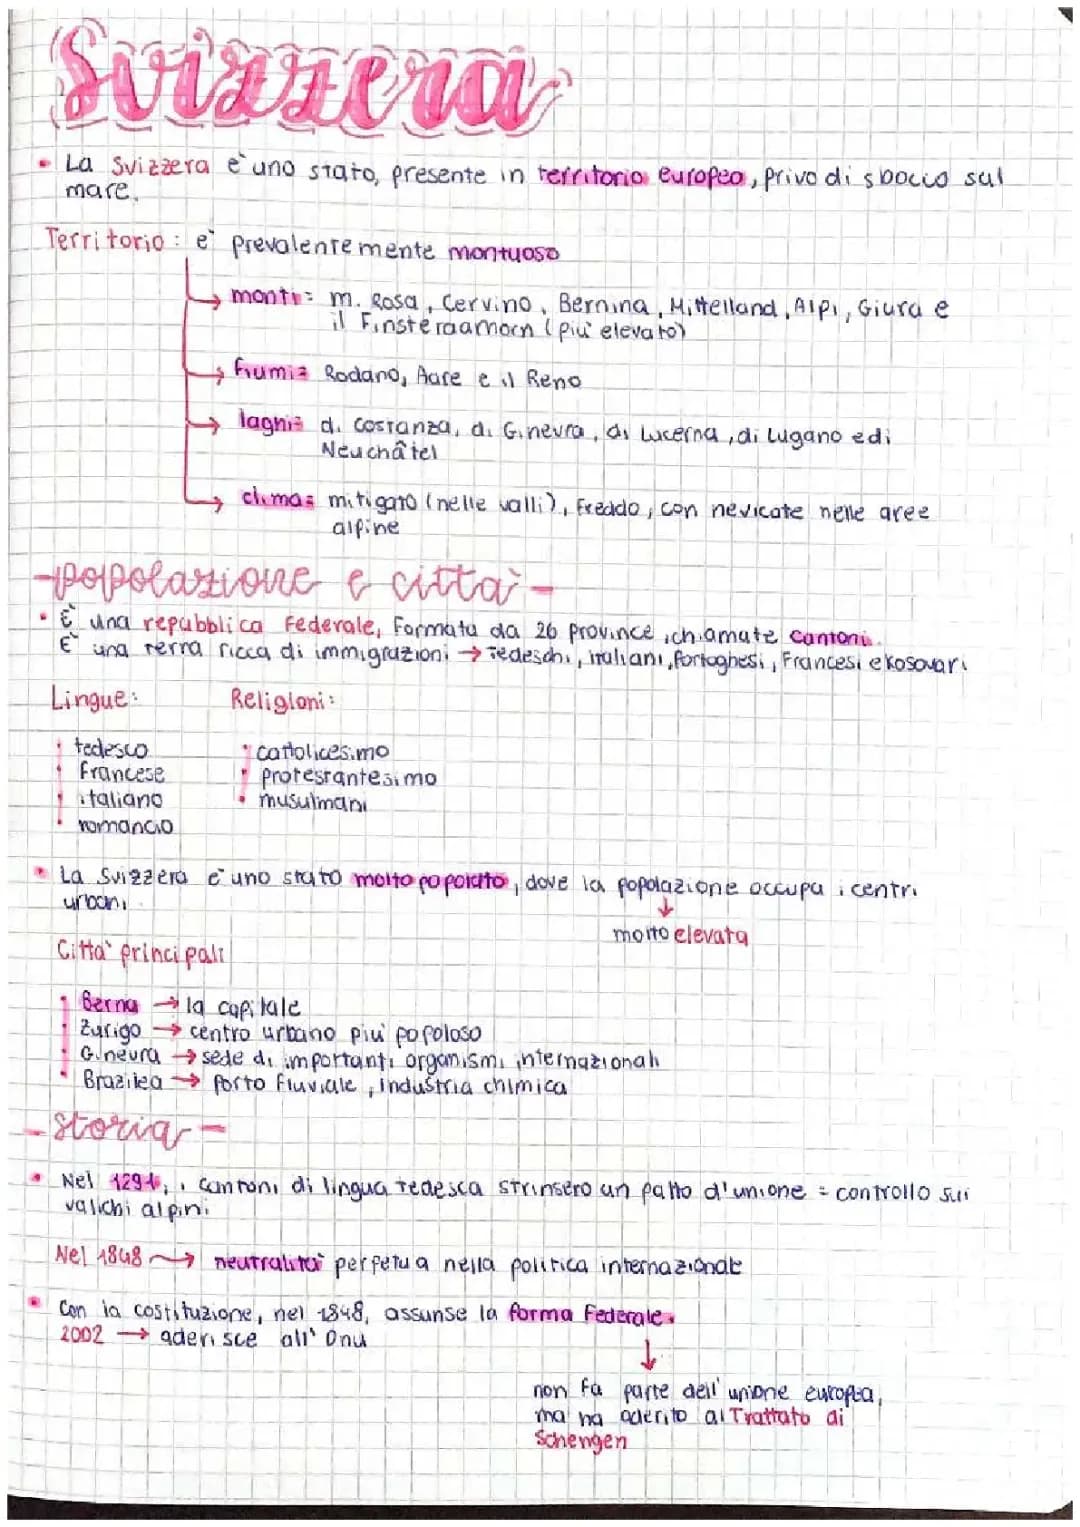 Svizzera
• La Svizzera è uno stato, presente in territorio europeo, privo di sbocco sul
mare.
Territorio: e' prevalentemente montuoso
→ monti: m. Rosa, Cervino, Bernina, Mittelland, Alpi, Giura e
il Finsteraarhorn (più elevato)
→ fiumi: Rodano, Aare e il Reno
→ laghi: di Costanza, di Ginevra, di Lucerna, di Lugano e di
Neuchâtel
→ clima: mitigato (nelle valli), Freddo, con nevicate nelle aree
alpine
-popolazione e città-
• È una repubblica Federale, Formata da 26 province, chiamate cantoni.
È una terra ricca di immigrazioni → tedeschi, italiani, Portoghesi, Francesi e kosovari
Lingue: Religioni:
• tedesco • cattolicesimo
• Francese • protestantesimo
• italiano • musulmani
• romancio
• La Svizzera è uno stato molto popolato, dove la popolazione occupa i centri
urbani.
↓
molto elevata
Città principali
• Berna → la capitale
• Zurigo → centro urbano più popoloso
• Ginevra → sede di importanti organismi internazionali
• Brazilea → porto fluviale, industria chimica
-storia-
• Nel 1291, i cantoni di lingua tedesca strinsero un patto d'unione = controllo sui
valichi alpini
Nel 1848 → neutralità perpetua nella politica internazionale
• Con la costituzione, nel 1848, assunse la forma Federale.
2002 → aderisce all'Onu
↓
non fa parte dell'unione europea,
ma ha aderito al Trattato di
Schengen